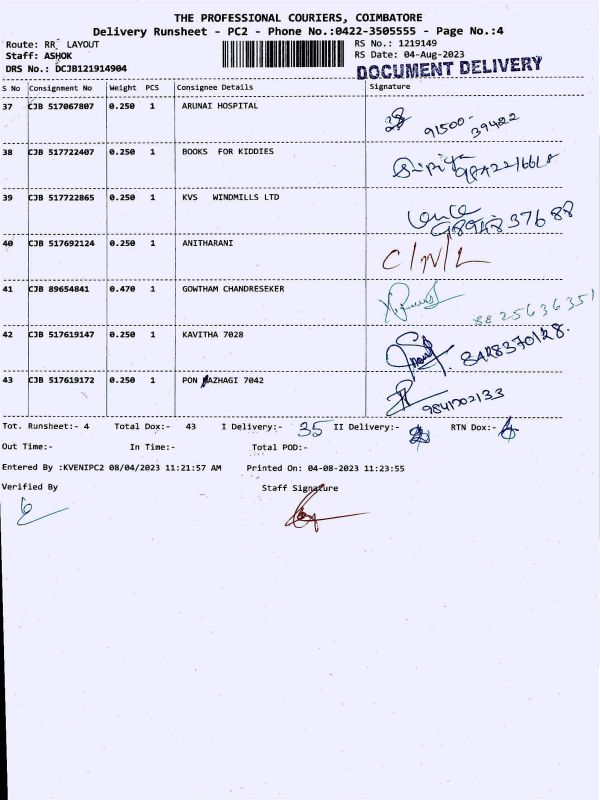 THE PROFESSIONAL COURIERS, COIMBATORE
Delivery Runsheet - PC2 - Phone No.:0422-3505555 - Page No.:4
Route: RR LAYOUT RS No.: 1219149
Staff: ASHOK RS Date: 04-Aug-2023
DRS No.: DCJB121914904 DOCUMENT DELIVERY
S No Consignment No Weight PCS Consignee Details Signature
37 CJB 517067807 0.250 1 ARUNAI HOSPITAL
91500-39422
38 CJB 517722407 0.250 1 BOOKS FOR KIDDIES
39 CJB 517722865 0.250 1 KVS WINDMILLS LTD
40 CJB 517692124 0.250 1 ANITHARANI C/N/L
41 CJB 89654841 0.470 1 GOWTHAM CHANDRESEKER
8825636351
42 CJB 517619147 0.250 1 KAVITHA 7028
8428370128.
43 CJB 517619172 0.250 1 PON AZHAGI 7042
Tot. Runsheet:- 4 Total Dox:- 43 I Delivery:- 35 II Delivery:- RTN Dox:-
Out Time:- In Time:- Total POD:-
Entered By :KVENIPC2 08/04/2023 11:21:57 AM Printed On: 04-08-2023 11:23:55
Verified By Staff Signature